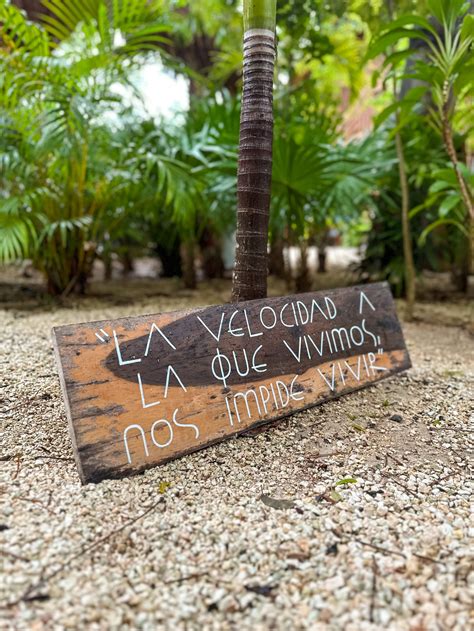 "LA VELOCIDAD A
LA QUE VIVIMOS,
NOS IMPIDE VIVIR"